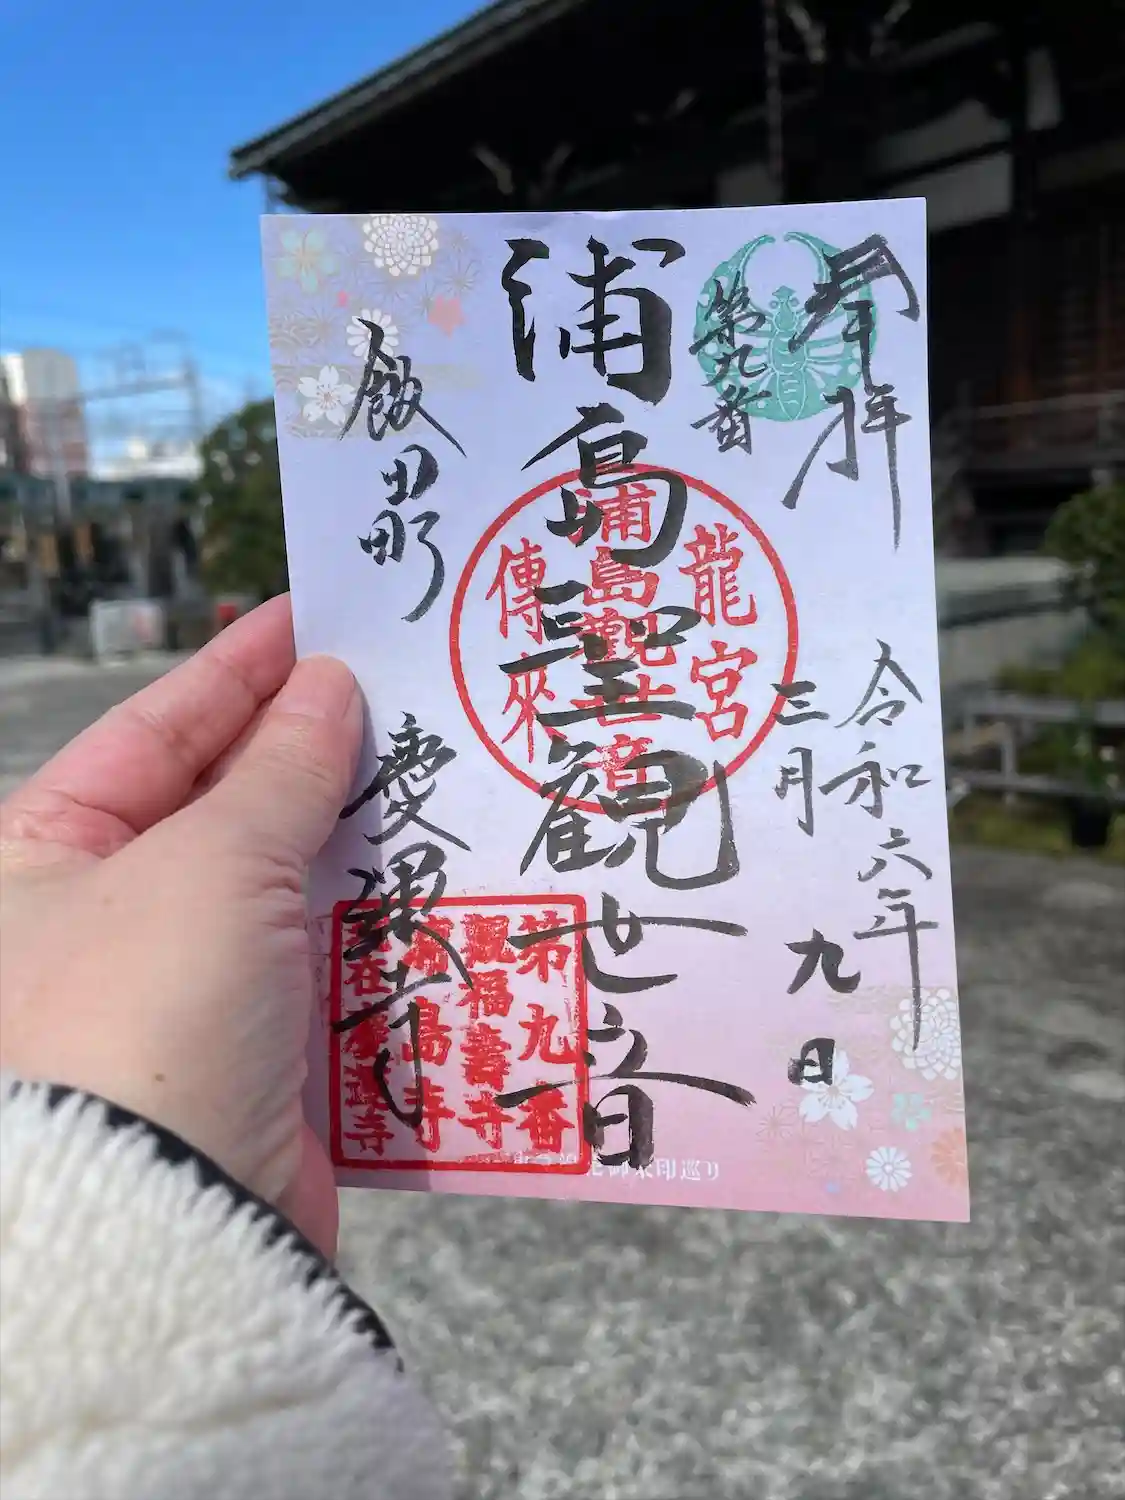 奉拝
第九番
令和六年
三月
九日
浦島聖観世音
飯田町
慶運寺
龍宮
浦島觀世音
傳来
第九番
觀福壽寺
浦島寺
慶運寺
御朱印巡り